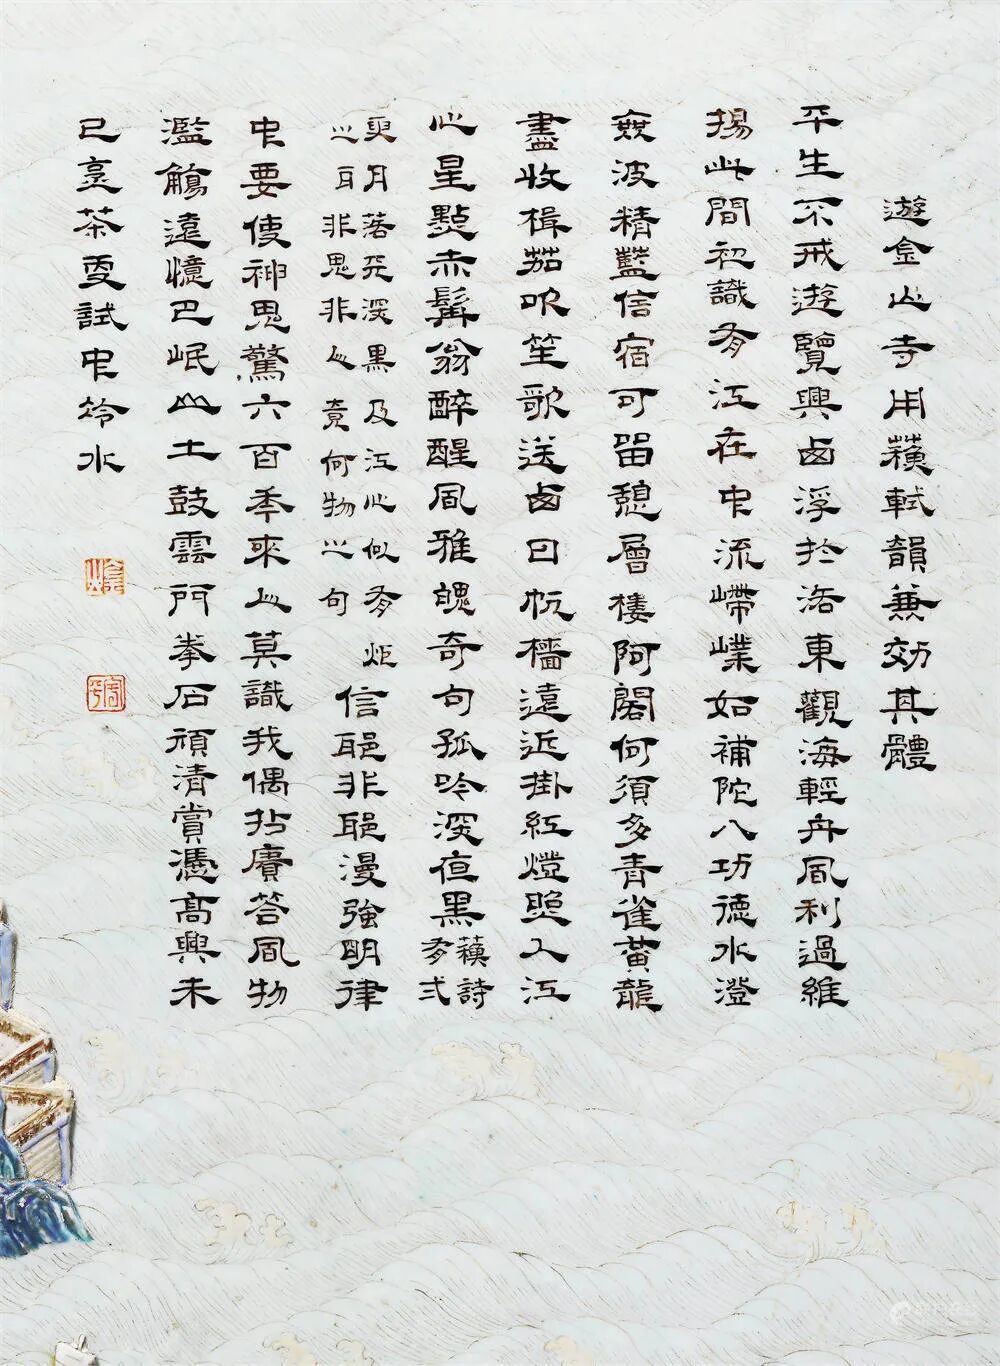 遊金山寺用蘓軾韻兼効其體
平生不戒遊覽興卥浮扵洛東觀海輕舟風利過維
揚此間初識有江在中流嵽嵲如補陀八功德水澄
無波精藍信宿可留憩層樓阿閣何須多青雀黃龍
盡收楫茄吹笙歌送卥日帆檣遠近掛紅燈照入江
心星㸃赤髯翁醉醒風雅魄奇句孤吟深夜黑
蘓詩
有弍
更月落天深黑及江心似有炬
非鬼非人竟何物之句
信耶非耶漫強明律
中要使神鬼驚六百年來人莫識我偶拈賡答風物
濫觴遠憶巴岷山土鼓雲門拳石頑清賞憑高興未
已烹茶更試中泠水